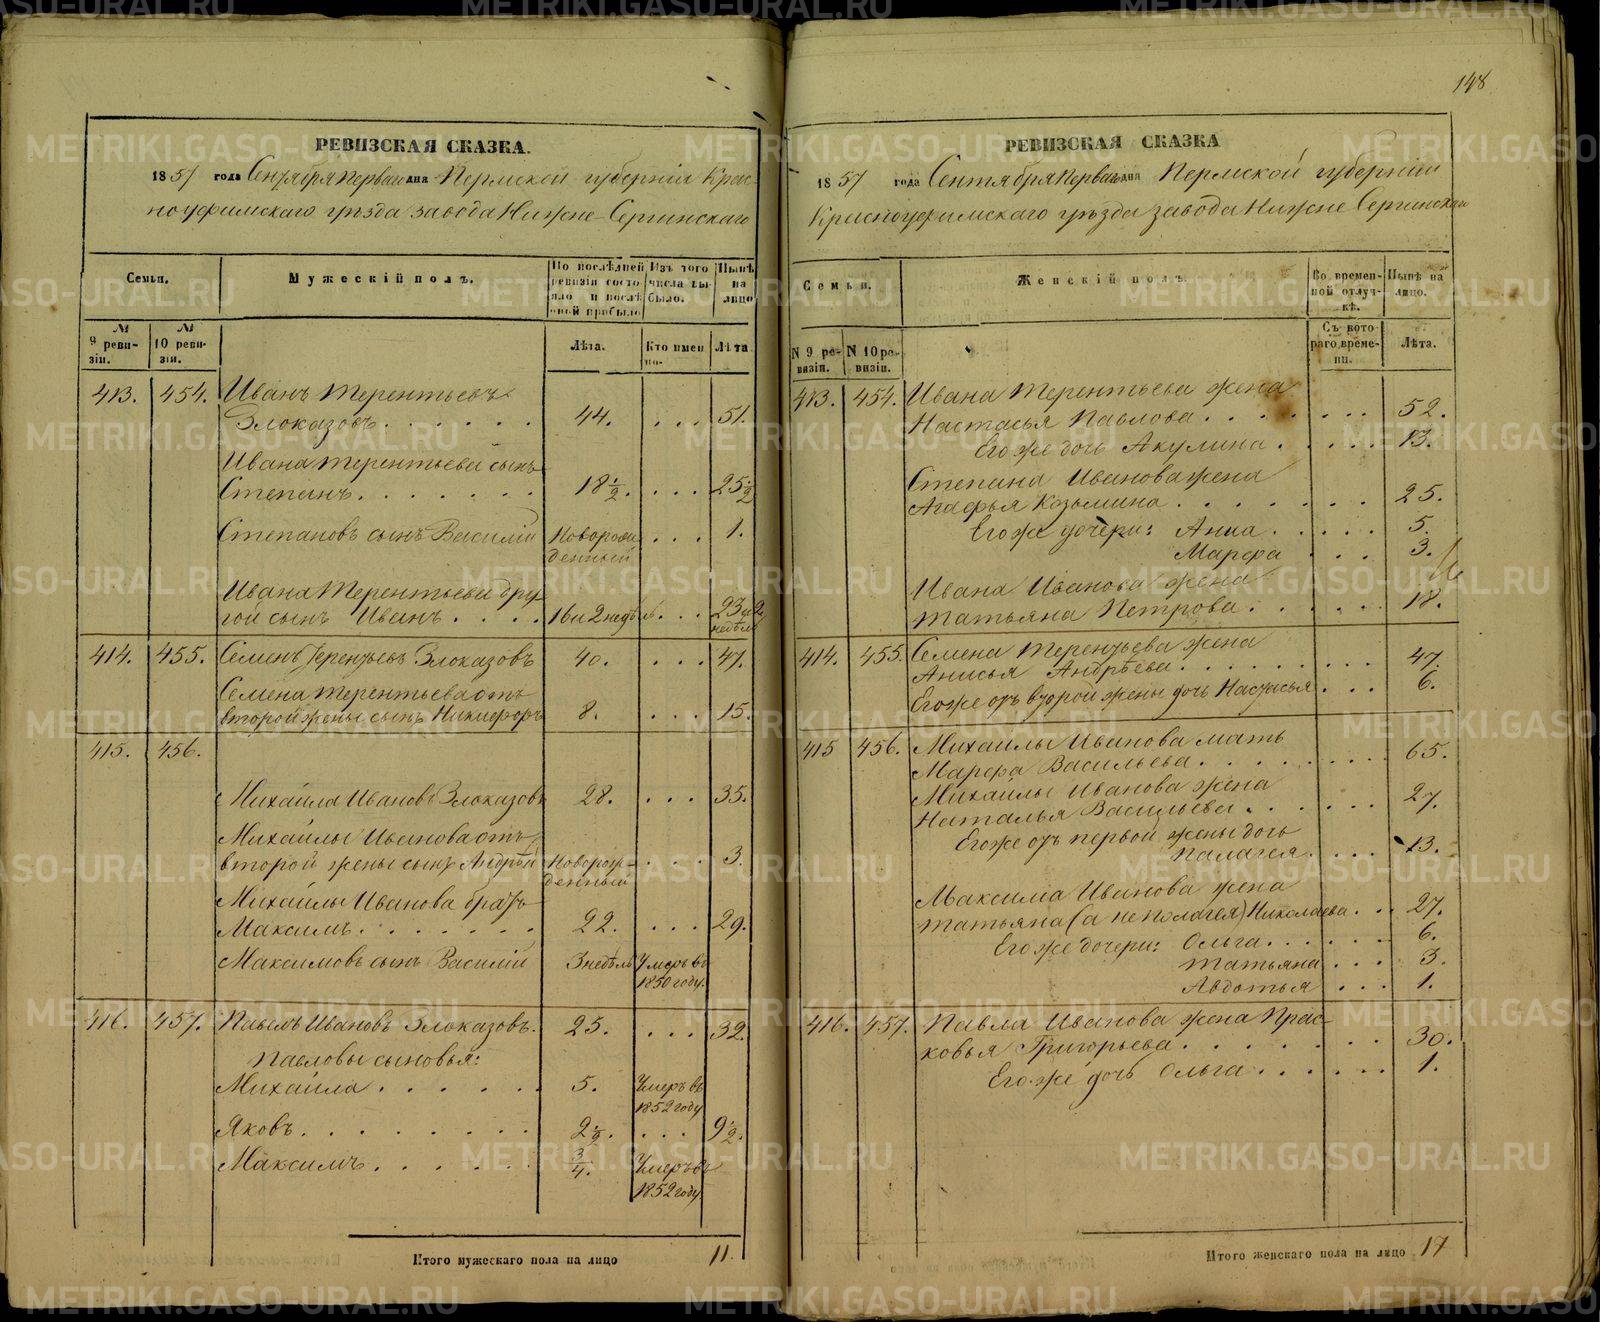 148
РЕВИЗСКАЯ СКАЗКА.
1857 года Сентября перваго дня Пермской губерніи Крас-
ноуфимскаго уѣзда завода Нижне-Сергинскаго
Семьи. Мужескій полъ. По послѣдней ревизіи состояло и послѣ оной прибыло Изъ того числа выбыло. Нынѣ на лицо
№ 9 ревизіи. № 10 ревизіи. Лѣта. Кто имен но. Лѣта
413. 454. Иванъ Терентьевъ
Злоказовъ. . . . . . 44. . . . 51.
Ивана Терентьева сынъ
Степанъ. . . . . . . 18 1/2. . . . 25 1/2
Степановъ сынъ Василій Новорож- . . . 1.
денный
Ивана Терентьева дру-
гой сынъ Иванъ. . . . 16 и 2 недѣл. . . . 23 и 2
недѣли
414. 455. Семенъ Терентьевъ Злоказовъ 40. . . . 47.
Семена Терентьева отъ
второй жены сынъ Никифоръ 8. . . . 15.
415. 456.
Михайла Ивановъ Злоказовъ 28. . . . 35.
Михайлы Иванова отъ
второй жены сынъ Андрей Новорож- . . . . 3.
денный
Михайлы Иванова братъ
Максимъ. . . . . . . 22. . . . 29.
Максимовъ сынъ Василій 3 недѣль Умеръ въ
1850 году.
416. 457. Павелъ Ивановъ Злоказовъ. 25. . . . 32.
Павловы сыновья:
Михайла . . . . . . 5. Умеръ въ
1852 году
Яковъ. . . . . . . . 2 1/2. . . . 9 1/2.
Максимъ. . . . . . 3/4. Умеръ въ
1852 году
Итого мужескаго пола на лицо 11.
РЕВИЗСКАЯ СКАЗКА
1857 года Сентября перваго дня Пермской губерніи
Красноуфимскаго уѣзда завода Нижне Сергинскаго
Семьи. Женскій полъ. Во временной отлучкѣ. Нынѣ на лицо.
N 9 ревизіи. N 10 ревизіи. Съ котораго времени. Лѣта.
413. 454. Ивана Терентьева жена
Настасья Павлова . . . . . . . 52.
Его же дочь Акулина . . . . . 13.
Степана Иванова жена
Агафья Козьмина . . . . . . . 25.
Его же дочери: Анна . . . . . 5.
Марфа . . . 3.
Ивана Иванова жена
Татьяна Петрова . . . . . . 18.
414. 455. Семена Терентьева жена
Анисья Андрѣева . . . . . . . . 47.
Его же отъ второй жены дочь Настасья . . . 6.
415 456. Михайлы Иванова мать
Марфа Васильева. . . . . . . . . 65.
Михайлы Иванова жена
Наталья Васильева . . . . . . 27.
Его же отъ первой жены дочь
Палагея. . . . 13.
Максима Иванова жена
Татьяна (а не Полагея) Николаева . . . 27.
Его же дочери: Ольга. . . . . . 6.
Татьяна . . . 3.
Авдотья . . . 1.
416. 457. Павла Иванова жена Прас-
ковья Григорьева. . . . . . . . 30.
Его же дочь Ольга . . . . . . 1.
Итого женскаго пола на лицо 17
METRIKI.GASO-URAL.RU